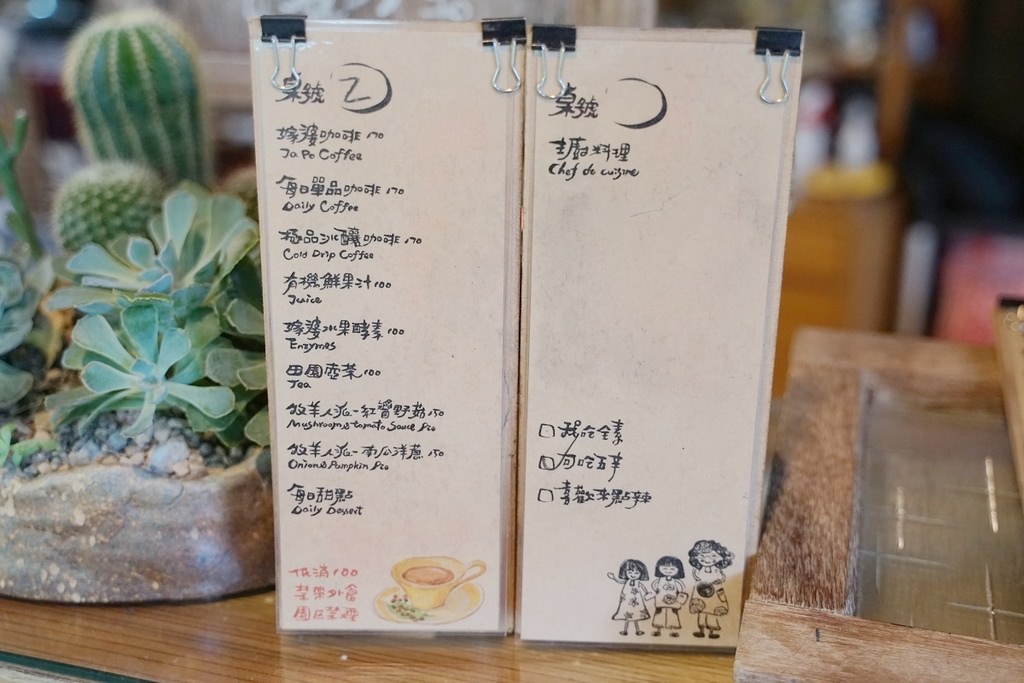 桌號 2
嫁婆咖啡 170
Ja Po Coffee
每日單品咖啡 170
Daily Coffee
極品冰釀咖啡 170
Cold Drip Coffee
有機鮮果汁 100
Juice
嫁婆水果酵素 100
Enzymes
田園壺茶 100
Tea
牧羊人派-紅醬野菇 150
Mushroom & tomato Sauce Pie
牧羊人派-南瓜洋蔥 150
Onion & Pumpkin Pie
每日甜點
Daily Dessert
低消100
禁帶外食
園區禁煙
桌號
主廚料理
Chef de cuisine
□我吃全素
□可吃五辛
□喜歡來點辣